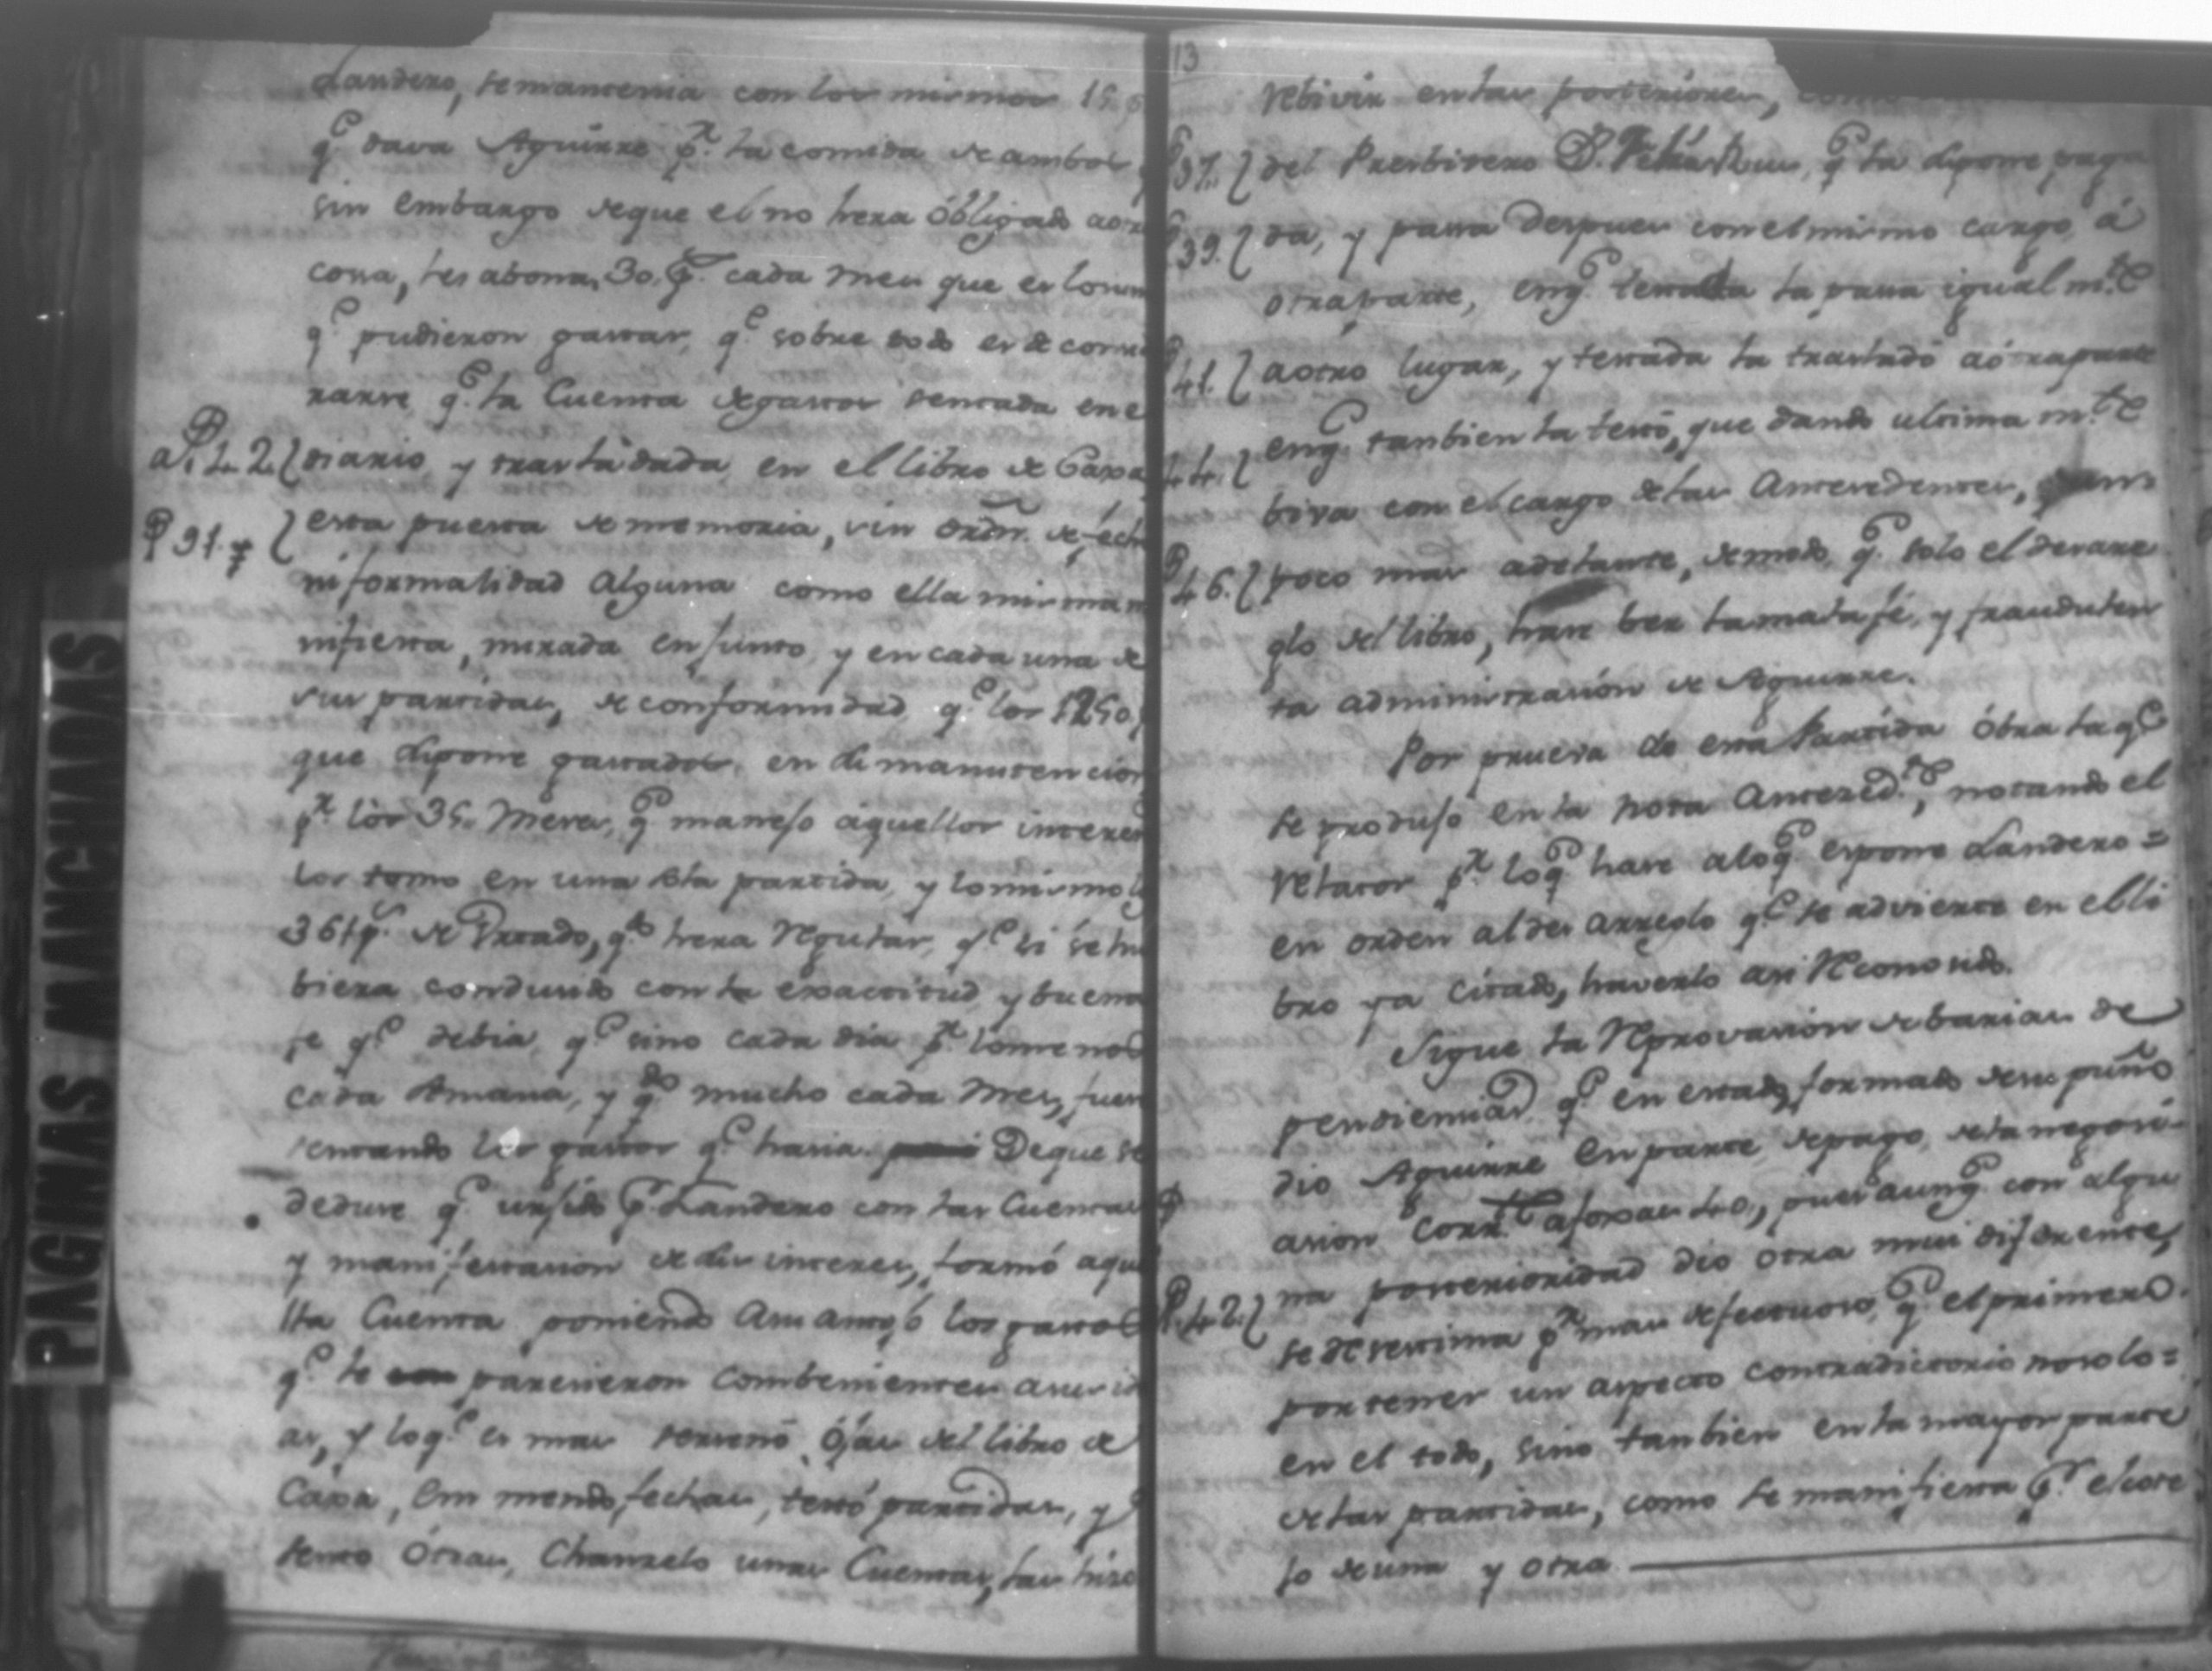 Landero, se mantenia con los mismos 15 p
q.e dava Aguirre p.a la comida de ambos
sin embargo de que el no hera óbligado a
cosa, les abona 30. p.s cada mes que es lo
q.e pudieron gastar, q.e sobre todo es de
rarse q.e la Cuenta de gastos sentada en e
a f. 42. diario y trasladada en el libro de Caxa
f. 91. esta puesta de memoria, sin orn. de fech
ni formalidad alguna como ella misma
nifiesta, mirada en junto, y en cada una de
sus partidas, de conformidad q.e los 1250 p
que dipone gastados en di manutencion
p.r los 35. Meses, q.e manejo aquellos interes
los tomo en una sola partida, y lo mismo
361 p.s de Prado, q.do hera Regular, q.e si se hu
biera condusido con la exactitud y buena
fe q.e debia, q.e sino cada dia p.r lo menos
cada semana, y q.do mucho cada Mes, fuera
sentando los gastos q.e hasia. De que se
deduse q.e urjido p.r Landero con las Cuentas
y manifestasion de sus intereses, formó aque
lla Cuenta poniendo a su antojó los gastos
q.e le paresieron combenientes
as, y lo q.e es mas ójas del libro de
Caxa, em mendo fechas, testó partidas, y
sento ótras, Chanzelo unas Cuentas, las hiso
13
rebivir en las posteriores,
f. 37. del Presbitero D. q.e la dipone paga
f. 39. da, y pasa despues con el mismo cargo á
otra parte, en q.e testada la pasa igual m.te
f. 41. a otro lugar, y testada la trasladó a ótra parte
f. 44. en q.e tanbien la testó, que dando ultima m.te
biva con el cargo de las Antesedentes,
f. 46. poco mas adelante, de modo q.e solo el desarre
glo del libro, hase ber la mala fé, y fraudulen
ta administrasión de Aguirre.
Por prueva de esta Partida óbra la q.e
se produjo en la nota Antesed.te, notando el
relator p.r lo q.e hase a lo q.e espone Landero =
en orden al des arreglo q.e se advierte en el li
bro ya citado, haverlo asi Reconosido.
Sigue la Reprovasion de barias de
pendiensias q.e en estado formado de su puño
dio Aguirre en parte de pago de la negosi-
asion Corr.te a foxas 40., pues aunq.e con algu
f. 42. na posterioridad dio otra mui diferente,
se desestima p.r mas defectuoso, q.e el primero
por tener un aspecto contradictorio no solo =
en el todo, sino tanbien en la mayor parte
de las partidas, como se manifiesta p.r el cote
jo de una y otra
PAGINAS MANCHADAS